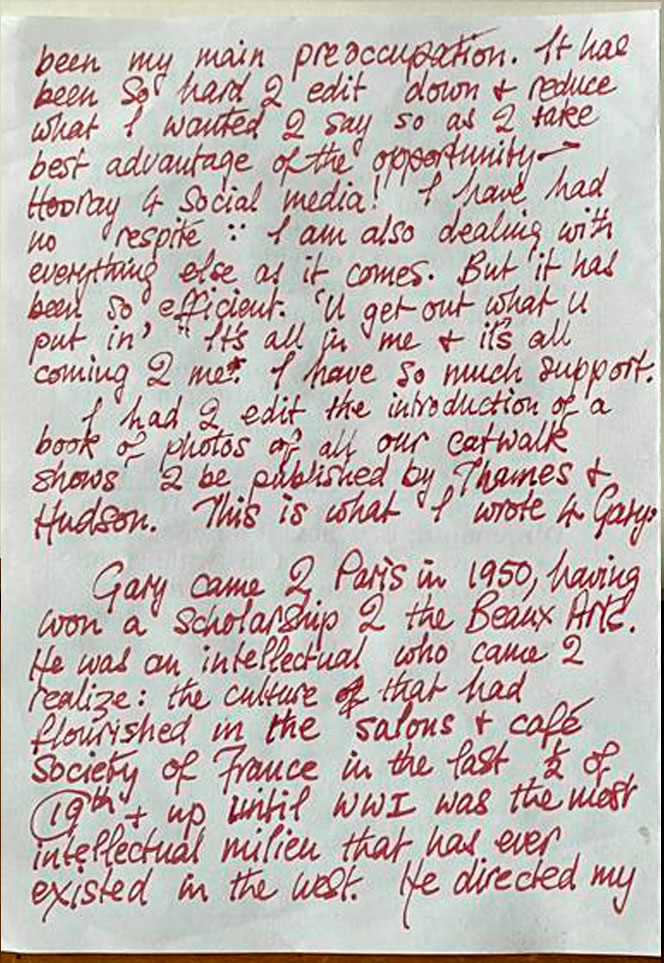 been my main preoccupation. It has
been so hard 2 edit down + reduce
what I wanted 2 say so as 2 take
best advantage of the opportunity –
Hooray 4 social media! I have had
no respite :: I am also dealing with
everything else as it comes. But it has
been so efficient. 'U get out what u
put in' "It's all in me + it's all
coming 2 me". I have so much support.
I had 2 edit the introduction of a
book of photos of all our catwalk
shows 2 be published by Thames +
Hudson. This is what I wrote 4 Gary:
Gary came 2 Paris in 1950, having
won a scholarship 2 the Beaux Arts.
He was an intellectual who came 2
realize: the culture that had
flourished in the salons + café
society of France in the last ½ of
19th + up until WWI was the most
intellectual milieu that has ever
existed in the west. He directed my